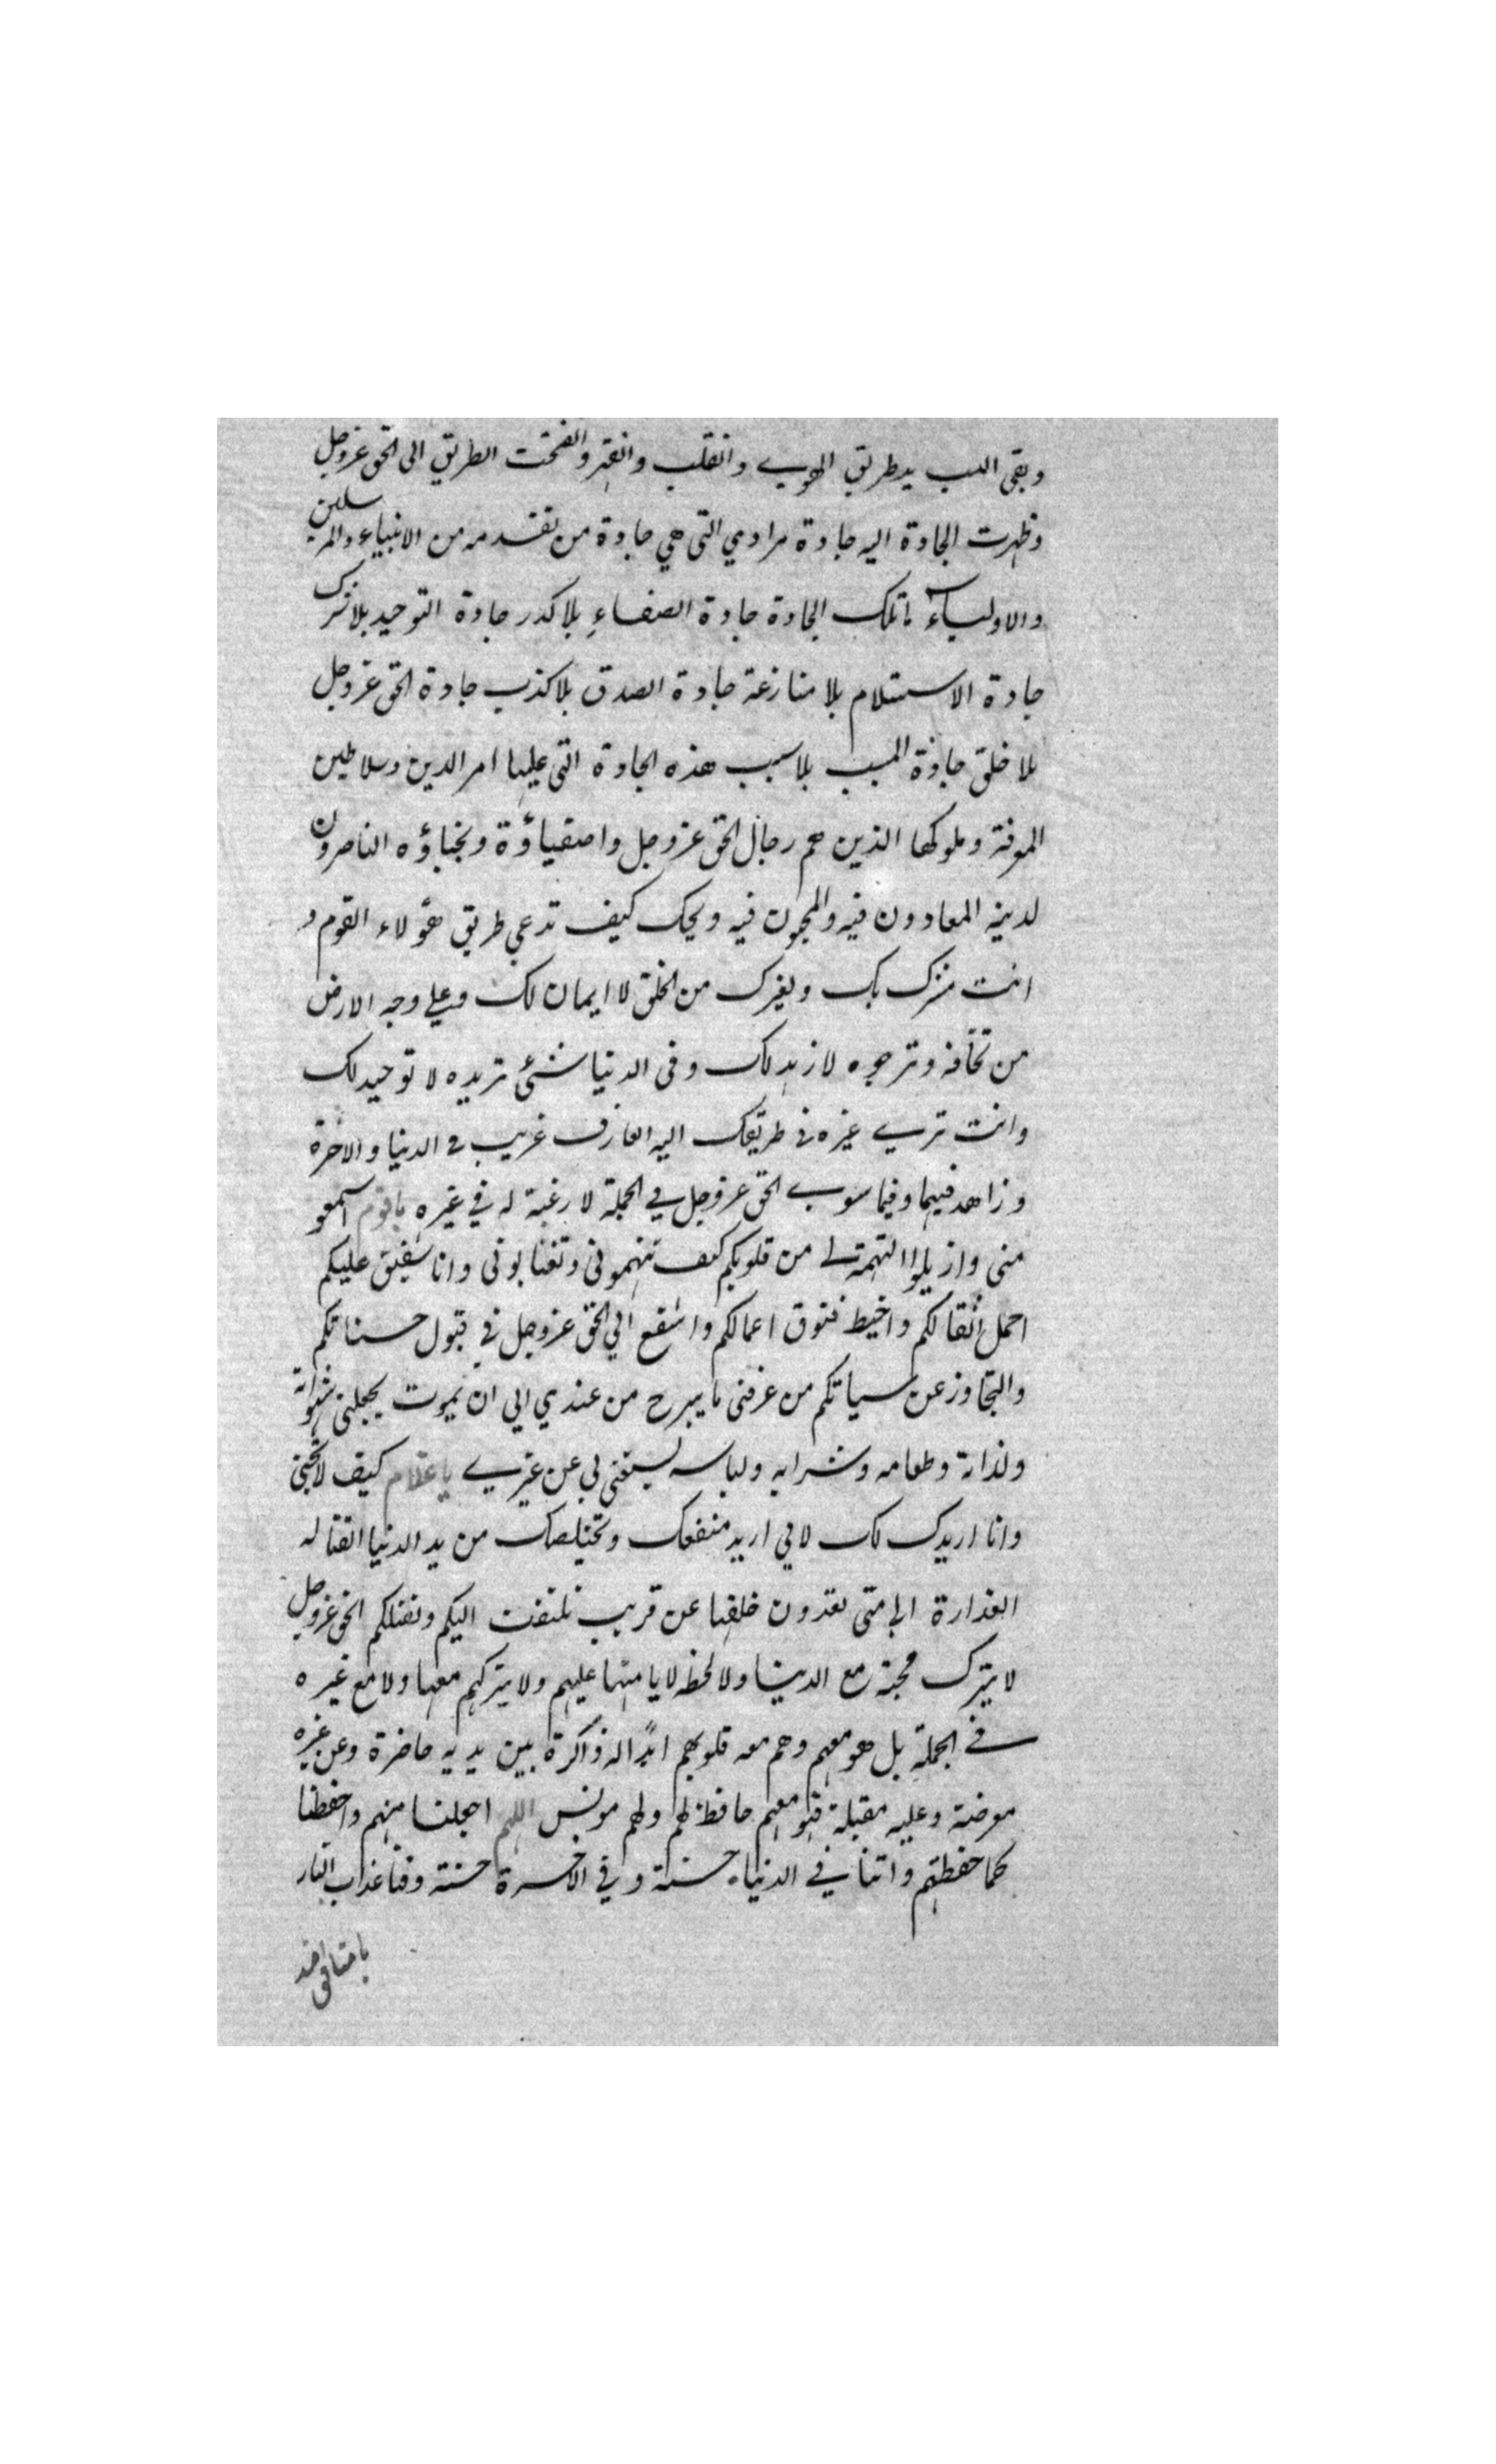 وبقى اللب يد طريق الهوى وانقلب وانقبر وانفتحت الطريق الى الحق عزوجل
وظهرت الجادة اليه جادة مرادمي التى هي جادة من تقدمه من الانبياء والمرسلين
والاولياء ماتلك الجادة جادة الصفاءِ بلا كدر جادة التوحيد بلا شرك
جادة الاستسلام بلا منازعة جادة الصدق بلا كذب جادة الحق عزوجل
بلا خلق جادة المسبب بلا سبب هذه الجادة التى عليها امر الدين وسلاطين
المعرفة وملوكها الذين هم رجال الحق عزوجل واصفياؤة ونجباؤه الناصرون
لدينه المعادون فيه والمحبون فيه ويحك كيف تدعي طريق هؤلاء القوم و
انت مشرك بك وبغيرك من الخلق لا ايمان لك وعلي وجه الارض
من تخافه وترجوه لا زهد لك وفى الدنيا شئى تريده لا توحيد لك
وانت ترى غيره فى طريقك اليه العارف غريب فى الدنيا والاخرة
وزاهد فيهما وفيما سوى الحق عزوجل في الجملة لا رغبة له في غيره ياقوم اسمعو
منى وازيلوا التهمة لى من قلوبكم كيف تتهمونى وتغتابونى وانا شفيق عليكم
احمل اثقالكم واخيط فتوق اعمالكم واشفع الي الحق عزوجل في قبول حسناتكم
والتجاوز عن سياتكم من عرفنى مايبرح من عندي الي ان يموت يجعلنى شهواته
ولذاته وطعامه وشرابه ولباسه يستغنى بي عن غيرى ياغلام كيف لا تحبنى
وانا اريدك لك لا لي اريد منفعتك وتخليصك من يد الدنيا القتاله
الغدارة الى متى تعدون خلفها عن قريب تلتفت اليكم وتقتلكم الحق عزوجل
لا يترك محبه مع الدنيا ولا لحظه لا يامنها عليهم ولا يتركهم معها ولا مع غيره
فى الجملة بل هو معهم وهم معه قلوبهم ابدًا له ذاكرة بين يديه حاضرة وعن غيره
معرضة وعليه مقبلة فهو معهم حافظ لهم ولهم مونس اللهم اجعلنا منهم واحفظنا
كما حفظتهم واتنا في الدنيا حسنة وفي الاخرة حسنة وقنا عذاب النار